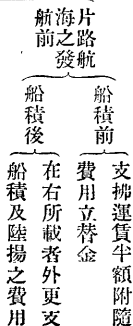 片路航
海之發
航前
船積前
支拂運賃半額附隨
費用立替金
船積後
在右所載者外更支
船積及陸揚之費用